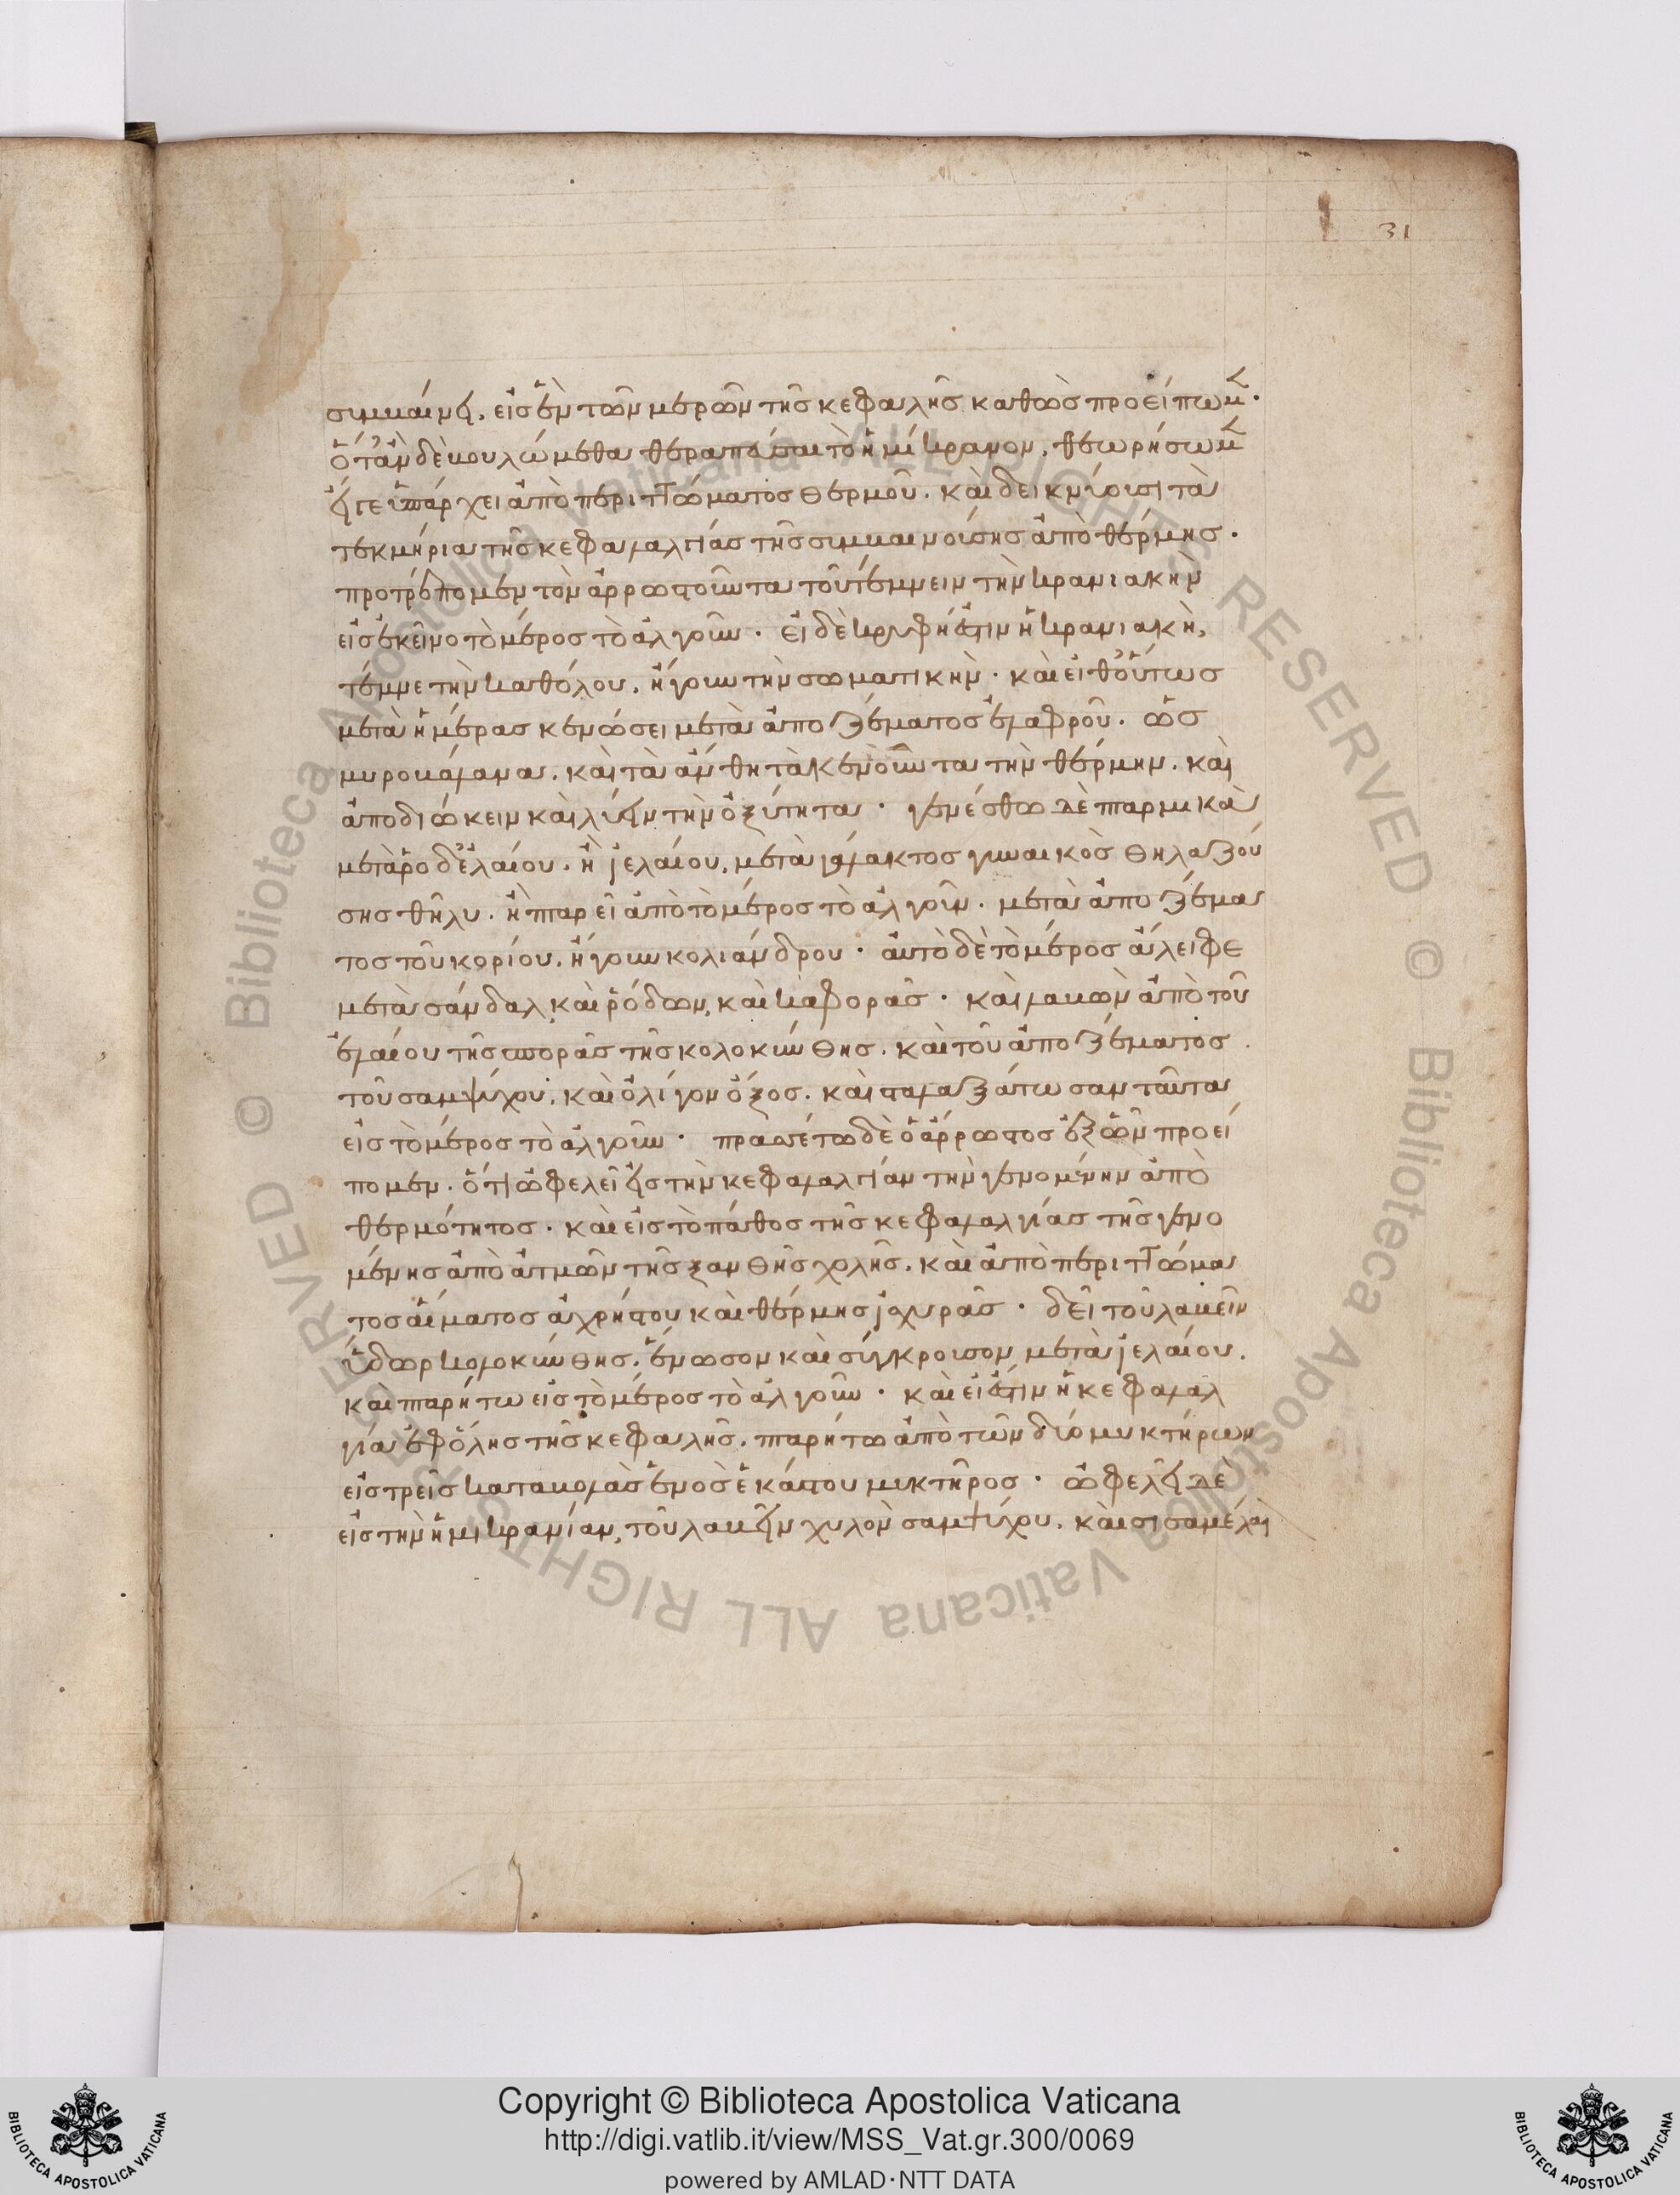 31
συμβαίνει, εἰς ἓν τῶν μερῶν τῆς κεφαλῆς καθὼς προείπωμ̅.
ὅταν δὲ βουλώμεθα θεραπεῦσαι τὸ ἡμίκρανον, θεωρήσωμ̅
εἴτε ὑπάρχει ἀπὸ περιττώματος θερμοῦ. καὶ δεικνύουσι τὰ
τεκμήρια τῆς κεφαλαλγίας τῆς συμβαινούσης ἀπὸ θέρμης.
προτρέπομεν τὸν ἀρρωστοῦντα τοῦ τέμνειν τὴν κρανιακὴν
εἰς ἐκεῖνο τὸ μέρος τὸ ἀλγοῦν. εἰ δὲ κρυφή ἐστιν ἡ κρανιακὴ,
τέμνε τὴν καθόλου, ἤγουν τὴν σωματικήν. καὶ εἶθ οὕτως
μετὰ ἡμέρας κενώσει μετὰ ἀποζέματος ἐλαφροῦ. ὡς
μυροβάλανα. καὶ τὰ ἄνθη τὰ κενοῦντα τὴν θέρμην. καὶ
ἀποδιώκειν καὶ λύειν τὴν ὀξύτητα. γενέσθω δὲ παρμικὰ
μετὰ ῥοδελαίου. ἢ ἰελαίου, μετὰ γάλακτος γυναικὸς θηλαζού
σης θῆλυ. ἢ παρεῖ ἀπὸ τὸ μέρος τὸ ἀλγοῦν. μετὰ ἀποζέμα
τος τοῦ κορίου, ἤγουν κολιάνδρου. αὐτὸ δὲ τὸ μέρος ἄλειφε
μετὰ σάνδαλ καὶ ῥόδων, καὶ καφορᾶς. καὶ λαβὼν ἀπὸ τοῦ
ἐλαίου τῆς σπορᾶς τῆς κολοκύνθης. καὶ τοῦ ἀποζέματος
τοῦ σαμψύχου, καὶ ὀλίγον ὄξος. καὶ σταλαζάτωσαν ταῦτα
εἰς τὸ μέρος τὸ ἀλγοῦν. πραϋνέτω δὲ ὁ ἄρρωστος ἐξ ὧν προεί
πομεν. ὅτι ὠφελεῖ εἰς τὴν κεφαλαλγίαν τὴν γενομένην ἀπὸ
θερμότητος. καὶ εἰς τὸ πάθος τῆς κεφαλαλγίας τῆς γενο
μένης ἀπὸ ἀτμῶν τῆς ξανθῆς χολῆς. καὶ ἀπὸ περιττώμα
τος αἵματος ἀχρήστου καὶ θέρμης ἰσχυρᾶς. δεῖ τοῦ λαβεῖν
ὕδωρ κολοκύνθης, ἕνωσον καὶ σύγκρουσον μετὰ ἰελαίου.
καὶ παρήτω εἰς τὸ μέρος τὸ ἀλγοῦν. καὶ εἰ ἐστιν ἡ κεφαλαλ
γία ἐφ ὅλης τῆς κεφαλῆς. παρήτω ἀπὸ τῶν δύο μυκτήρων
εἰς τρεῖς καταβολὰς ἑνὸς ἑκάστου μυκτῆρος. ὠφελεῖ δὲ
εἰς τὴν ἡμικρανίαν, τοῦ λαβεῖν χυλὸν σαμψύχου. καὶ σισαμέλαι
© Biblioteca Apostolica Vaticana ALL RIGHTS RESERVED © Biblioteca Apostolica Vaticana ALL RIGHTS RESERVED
Copyright © Biblioteca Apostolica Vaticana
http://digi.vatlib.it/view/MSS_Vat.gr.300/0069
powered by AMLAD·NTT DATA
BIBLIOTECA APOSTOLICA VATICANA
BIBLIOTECA APOSTOLICA VATICANA